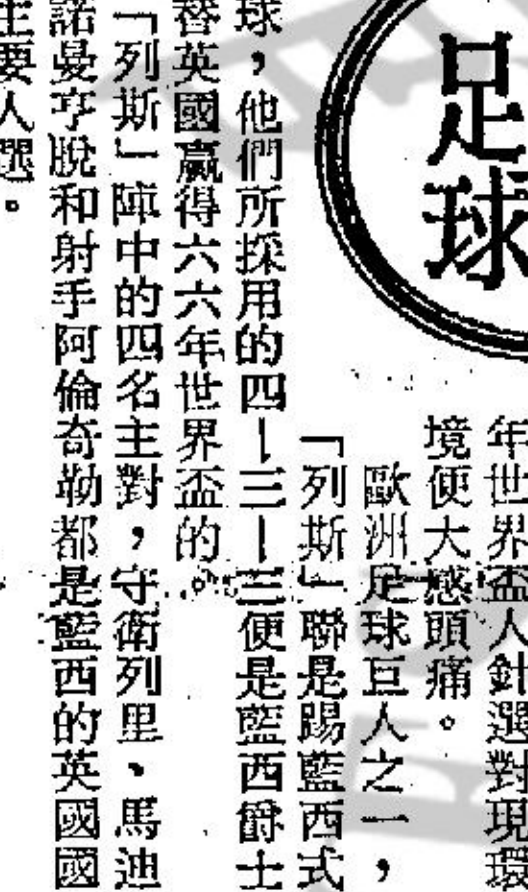 足球
年世界盃人針選對現環
境便大感頭痛。
歐洲足球巨人之一，
「列斯」聯是踢藍西式
球，他們所採用的四—三—三便是藍西爵士
替英國贏得六六年世界盃的。
「列斯」陣中的四名主對，守衛列里、馬迪
諾曼亨脫和射手阿倫奇勒都是藍西的英國國
主要人選。